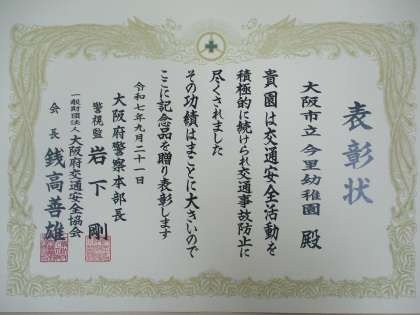 表彰状
大阪市立 今里幼稚園 殿
貴園は交通安全活動を
積極的に続けられ交通事故防止に
尽くされました
その功績はまことに大きいので
ここに記念品を贈り表彰します
令和七年九月二十一日
大阪府警察本部長
警視監 岩下 剛
一般財団法人 大阪府交通安全協会
会長 銭高善雄